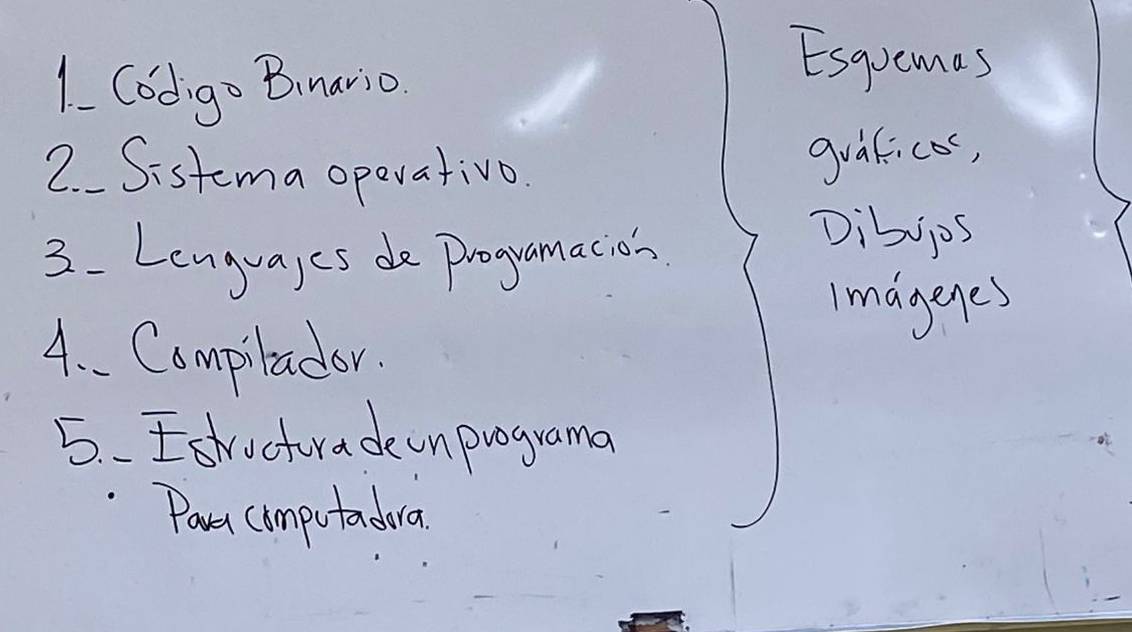 1._ Código Binario.
2._ Sistema operativo.
3._ Lenguajes de Programación.
4._ Compilador.
5._ Estructura de un programa
Para computadora.
Esquemas
gráficos,
Dibujos
imágenes